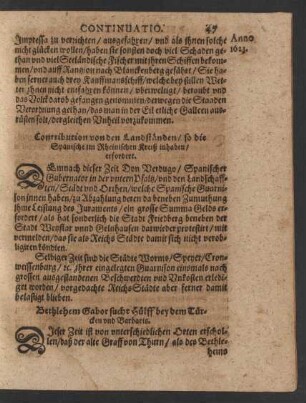 CONTINUATIO.
47
Impressa zu verrichten / ausgefahren / und als jhnen solche
Anno
nicht glücken wollen / haben sie sonsten doch viel Schaden ge-
1623.
than und viel Seeländische Fischer mit jhren Schiffen bekom-
men / und auff Rantzion nach Blanckenberg geführt / Sie ha-
ben ferner auch drey Kauffmansschiff / welche bey stillem Wet-
ter jhnen nicht entfahren können / uberweltigt / beraubt und
das Volck darob gefangen genommen / derwegen die Staaden
Verordnung gethan / das man in der Eil etliche Galleen auß-
rüsten solt / dergleichen Unheil vorzukommen.
Contribution von den Landständen / so die
Spanische im Rheinischen Kreiß inhaben /
erfordert.
DEmnach dieser Zeit Don Verdugo / Spanischer
Gubernator in der untern Pfaltz / von den Landschaff-
ten / Städt und Orthen / welche Spanische Guarni-
son innen haben / zu Abzahlung deren da beneben Zumuthung
jhme Leistung des Juraments / ein grosse Summa Gelds er-
fordert / als hat sonderlich die Stadt Friedberg beneben der
Stadt Wetzflar und Gelnhausen darwieder protestirt / mit
vermelden / das sie als Reichs Städte damit sich nicht vero-
bligiren köndten.
Selbiger Zeit sind die Städte Worms / Speyer / Cron-
weissenburg / etc. jhrer eingelegten Guarnison einsmals nach
grossen außgestandenen Beschwerden und Unkosten erledi-
get worden / vorgedachte Reichs Städte aber ferner damit
belästigt blieben.
Bethlehem Gabor sucht Hülff bey dem Tür-
cken und Barbaris.
DIeser Zeit ist von unterschiedlichen Orten erschol-
len / daß der alte Graff von Thurn / als des Bethle-
hems